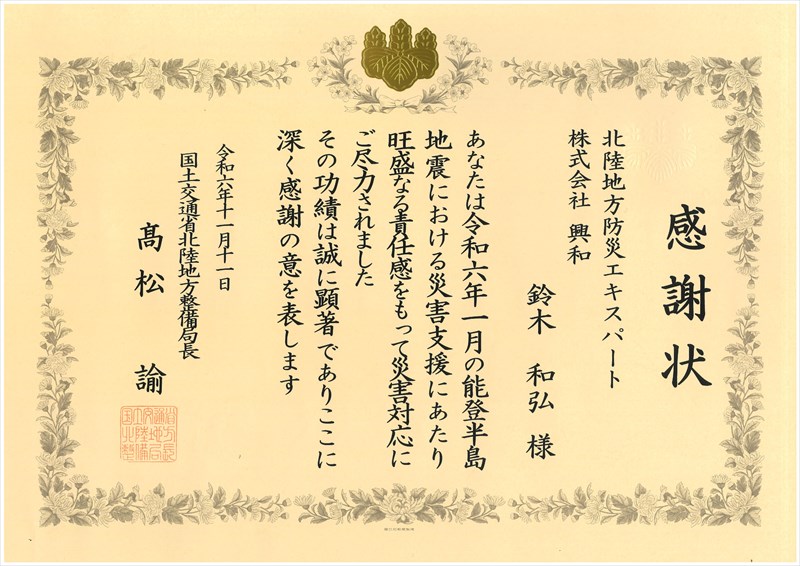 感謝状
北陸地方防災エキスパート
株式会社 興和
鈴木 和弘 様
あなたは令和六年一月の能登半島
地震における災害支援にあたり
旺盛なる責任感をもって災害対応に
ご尽力されました
その功績は誠に顕著でありここに
深く感謝の意を表します
令和六年十一月十一日
国土交通省北陸地方整備局長
髙松 諭